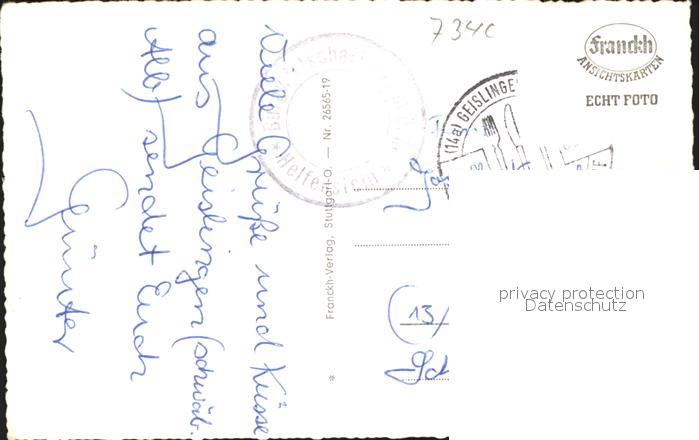 Viele Grüße und Küsse
aus Geislingen (schwäb.
Alb) sendet Euch
Günter
Helfenstein
Franckh-Verlag, Stuttgart-O. — Nr. 26565-19
734c
(14a) GEISLINGE
Franckh
ANSICHTSKARTEN
ECHT FOTO
(13/
privacy protection
Datenschutz